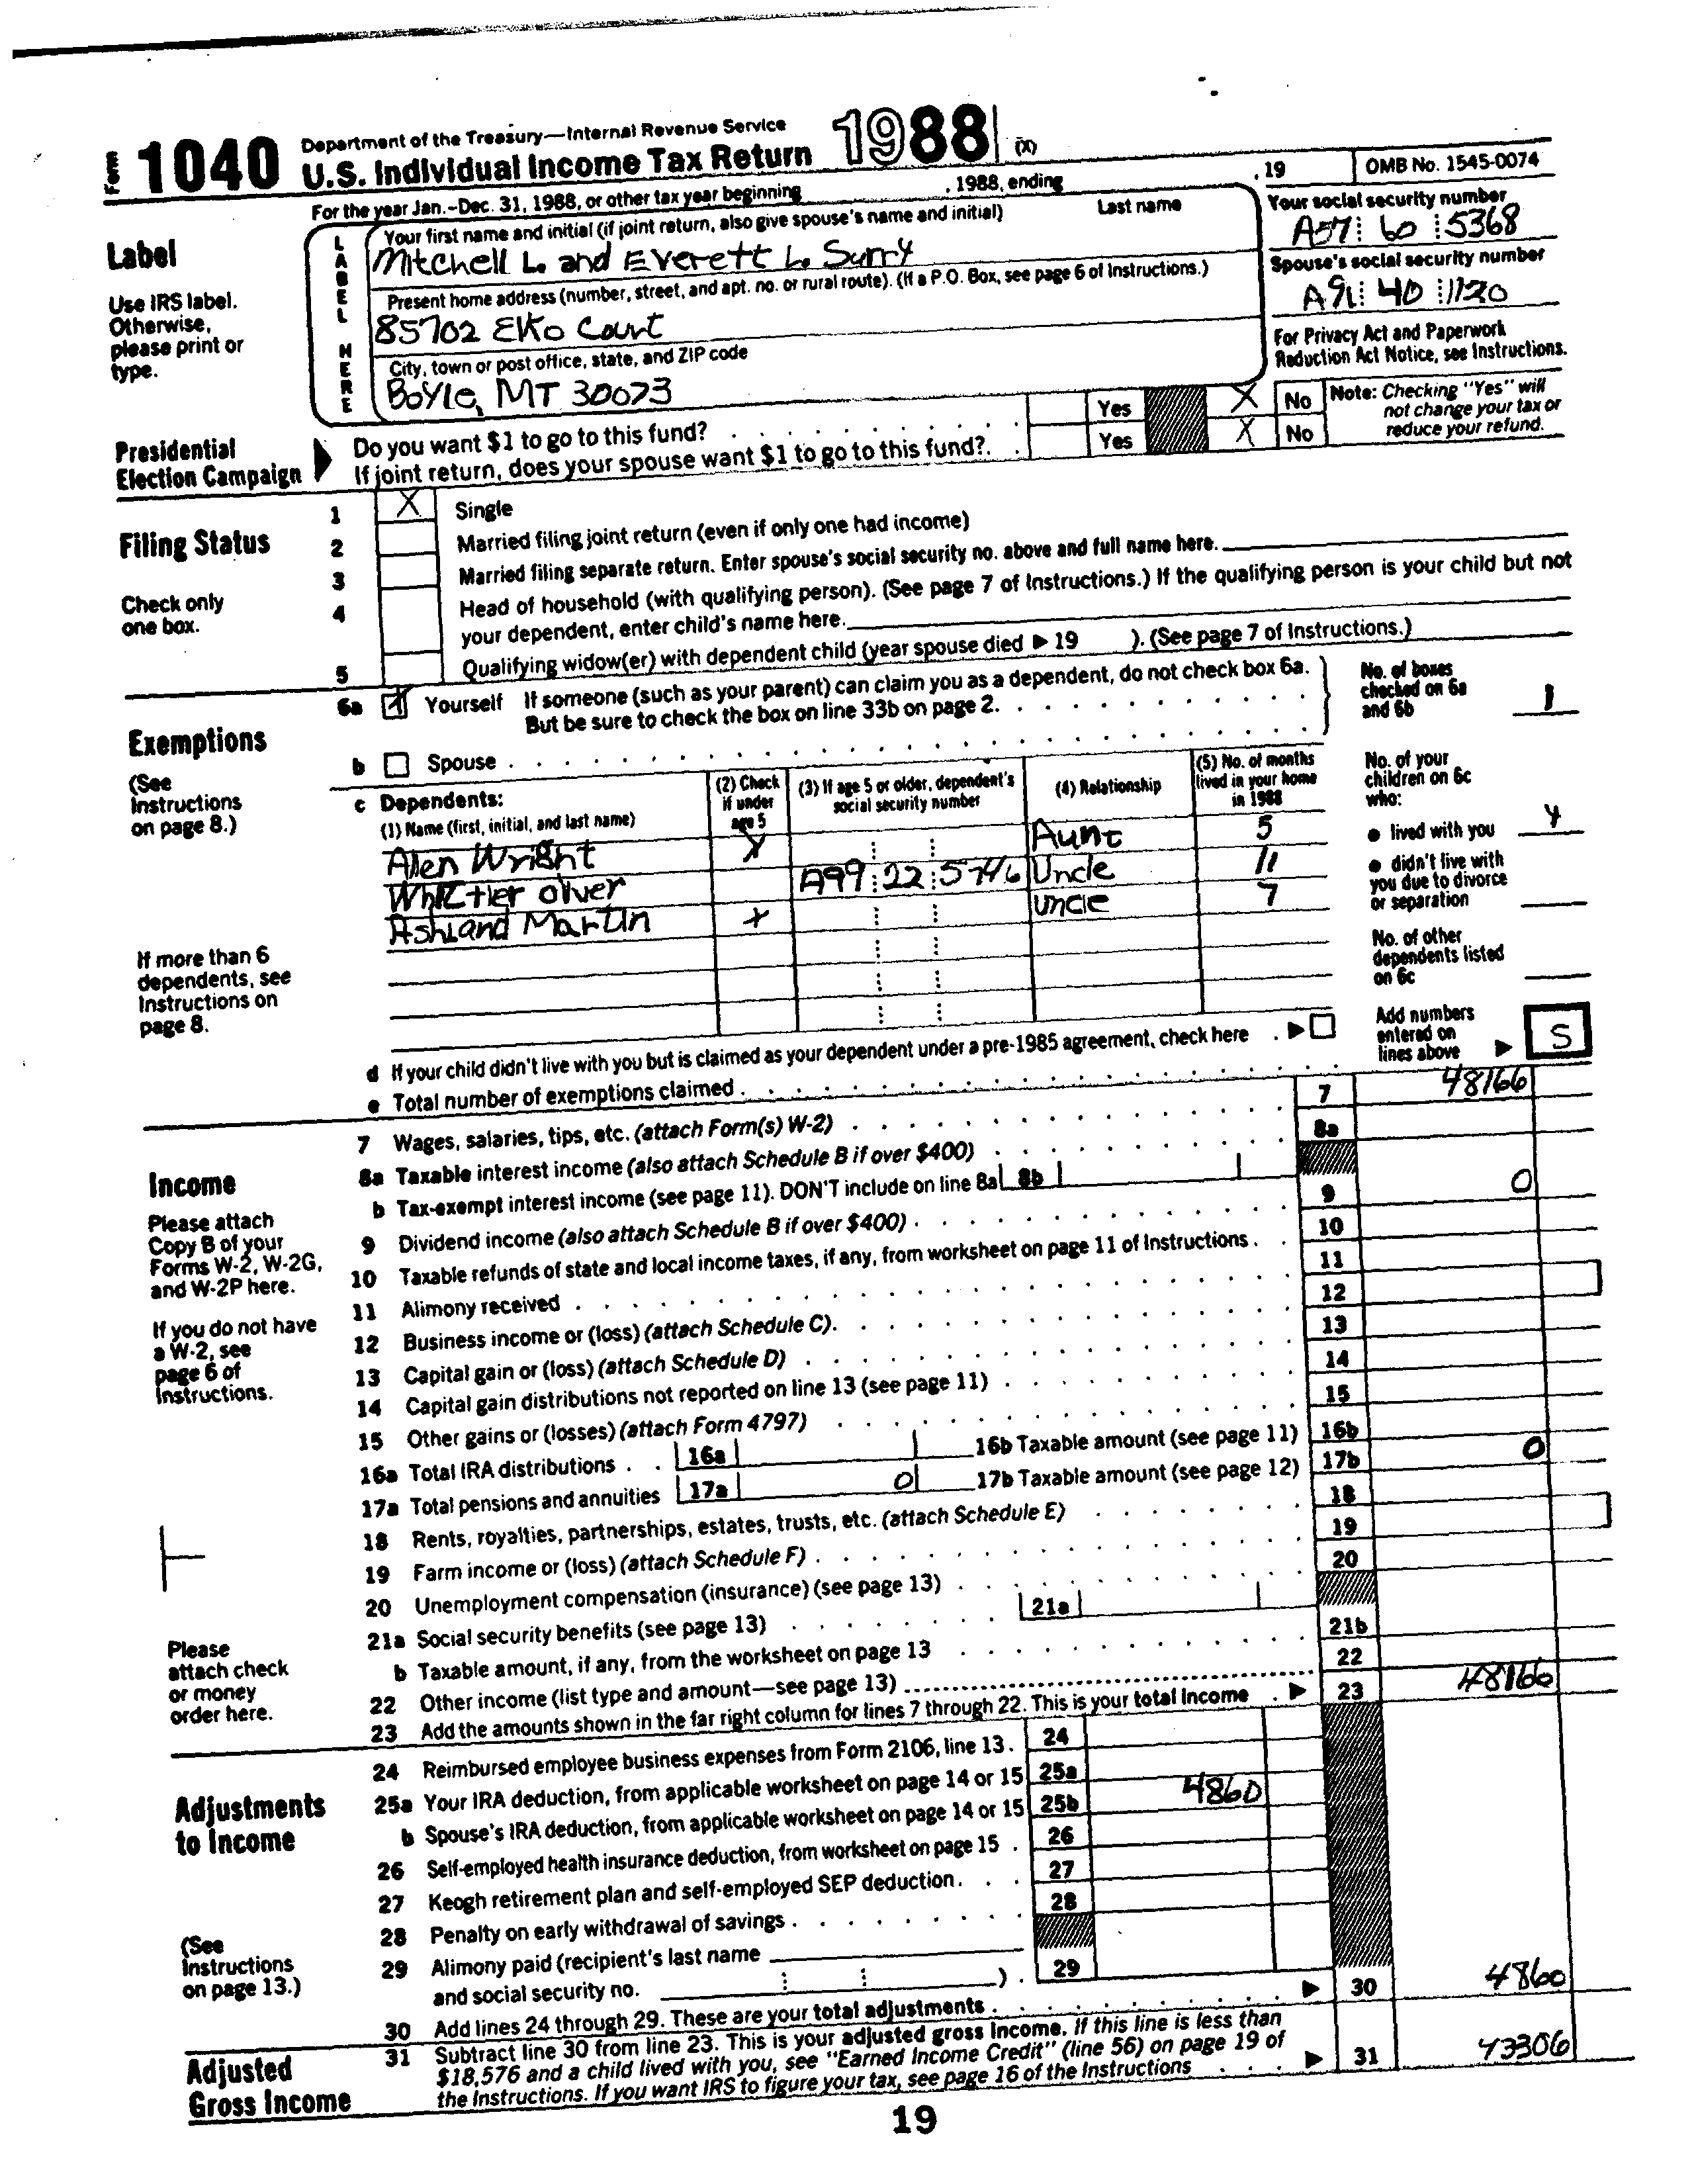 Form 1040 Department of the Treasury—Internal Revenue Service
U.S. Individual Income Tax Return 1988 (X)
For the year Jan.-Dec. 31, 1988, or other tax year beginning , 1988, ending , 19 OMB No. 1545-0074
Label
Use IRS label. Otherwise, please print or type.
LABEL HERE
Your first name and initial (if joint return, also give spouse's name and initial) Last name
Mitchell L. and Everett L. Surry
Your social security number
A57 60 5368
Present home address (number, street, and apt. no. or rural route). (If a P.O. Box, see page 6 of Instructions.)
85702 EKo Court
Spouse's social security number
A91 40 1120
City, town or post office, state, and ZIP code
Boyle, MT 30073
For Privacy Act and Paperwork Reduction Act Notice, see Instructions.
Presidential Election Campaign
Do you want $1 to go to this fund? . . . Yes X No
If joint return, does your spouse want $1 to go to this fund?. . Yes X No
Note: Checking "Yes" will not change your tax or reduce your refund.
Filing Status
Check only one box.
1 X Single
2 Married filing joint return (even if only one had income)
3 Married filing separate return. Enter spouse's social security no. above and full name here.
4 Head of household (with qualifying person). (See page 7 of Instructions.) If the qualifying person is your child but not
your dependent, enter child's name here.
5 Qualifying widow(er) with dependent child (year spouse died ▶ 19 ). (See page 7 of Instructions.)
Exemptions
(See Instructions on page 8.)
6a X Yourself If someone (such as your parent) can claim you as a dependent, do not check box 6a.
But be sure to check the box on line 33b on page 2.
No. of boxes checked on 6a and 6b 1
b Spouse
c Dependents:
(1) Name (first, initial, and last name)
(2) Check if under age 5
(3) If age 5 or older, dependent's social security number
(4) Relationship
(5) No. of months lived in your home in 1988
Alen Wright X Aunt 5
Whittier oliver A99 22 5746 Uncle 11
Ashland Martin X uncle 7
No. of your children on 6c who:
● lived with you 4
● didn't live with you due to divorce or separation
No. of other dependents listed on 6c
If more than 6 dependents, see Instructions on page 8.
d If your child didn't live with you but is claimed as your dependent under a pre-1985 agreement, check here . ▶
e Total number of exemptions claimed
Add numbers entered on lines above ▶ 5
Income
Please attach Copy B of your Forms W-2, W-2G, and W-2P here.
If you do not have a W-2, see page 6 of Instructions.
Please attach check or money order here.
7 Wages, salaries, tips, etc. (attach Form(s) W-2) 7 48166
8a Taxable interest income (also attach Schedule B if over $400) 8a
b Tax-exempt interest income (see page 11). DON'T include on line 8a 8b
9 Dividend income (also attach Schedule B if over $400) 9 0
10 Taxable refunds of state and local income taxes, if any, from worksheet on page 11 of Instructions 10
11 Alimony received 11
12 Business income or (loss) (attach Schedule C) 12
13 Capital gain or (loss) (attach Schedule D) 13
14 Capital gain distributions not reported on line 13 (see page 11) 14
15 Other gains or (losses) (attach Form 4797) 15
16a Total IRA distributions 16a 16b Taxable amount (see page 11) 16b
17a Total pensions and annuities 17a 0 17b Taxable amount (see page 12) 17b 0
18 Rents, royalties, partnerships, estates, trusts, etc. (attach Schedule E) 18
19 Farm income or (loss) (attach Schedule F) 19
20 Unemployment compensation (insurance) (see page 13) 20
21a Social security benefits (see page 13) 21a
b Taxable amount, if any, from the worksheet on page 13 21b
22 Other income (list type and amount—see page 13) 22
23 Add the amounts shown in the far right column for lines 7 through 22. This is your total income ▶ 23 48166
Adjustments to Income
(See Instructions on page 13.)
24 Reimbursed employee business expenses from Form 2106, line 13 24
25a Your IRA deduction, from applicable worksheet on page 14 or 15 25a 4860
b Spouse's IRA deduction, from applicable worksheet on page 14 or 15 25b
26 Self-employed health insurance deduction, from worksheet on page 15 26
27 Keogh retirement plan and self-employed SEP deduction 27
28 Penalty on early withdrawal of savings 28
29 Alimony paid (recipient's last name
and social security no. ) 29
30 Add lines 24 through 29. These are your total adjustments ▶ 30 4860
Adjusted Gross Income
31 Subtract line 30 from line 23. This is your adjusted gross income. If this line is less than
$18,576 and a child lived with you, see "Earned Income Credit" (line 56) on page 19 of
the Instructions. If you want IRS to figure your tax, see page 16 of the Instructions ▶ 31 43306
19